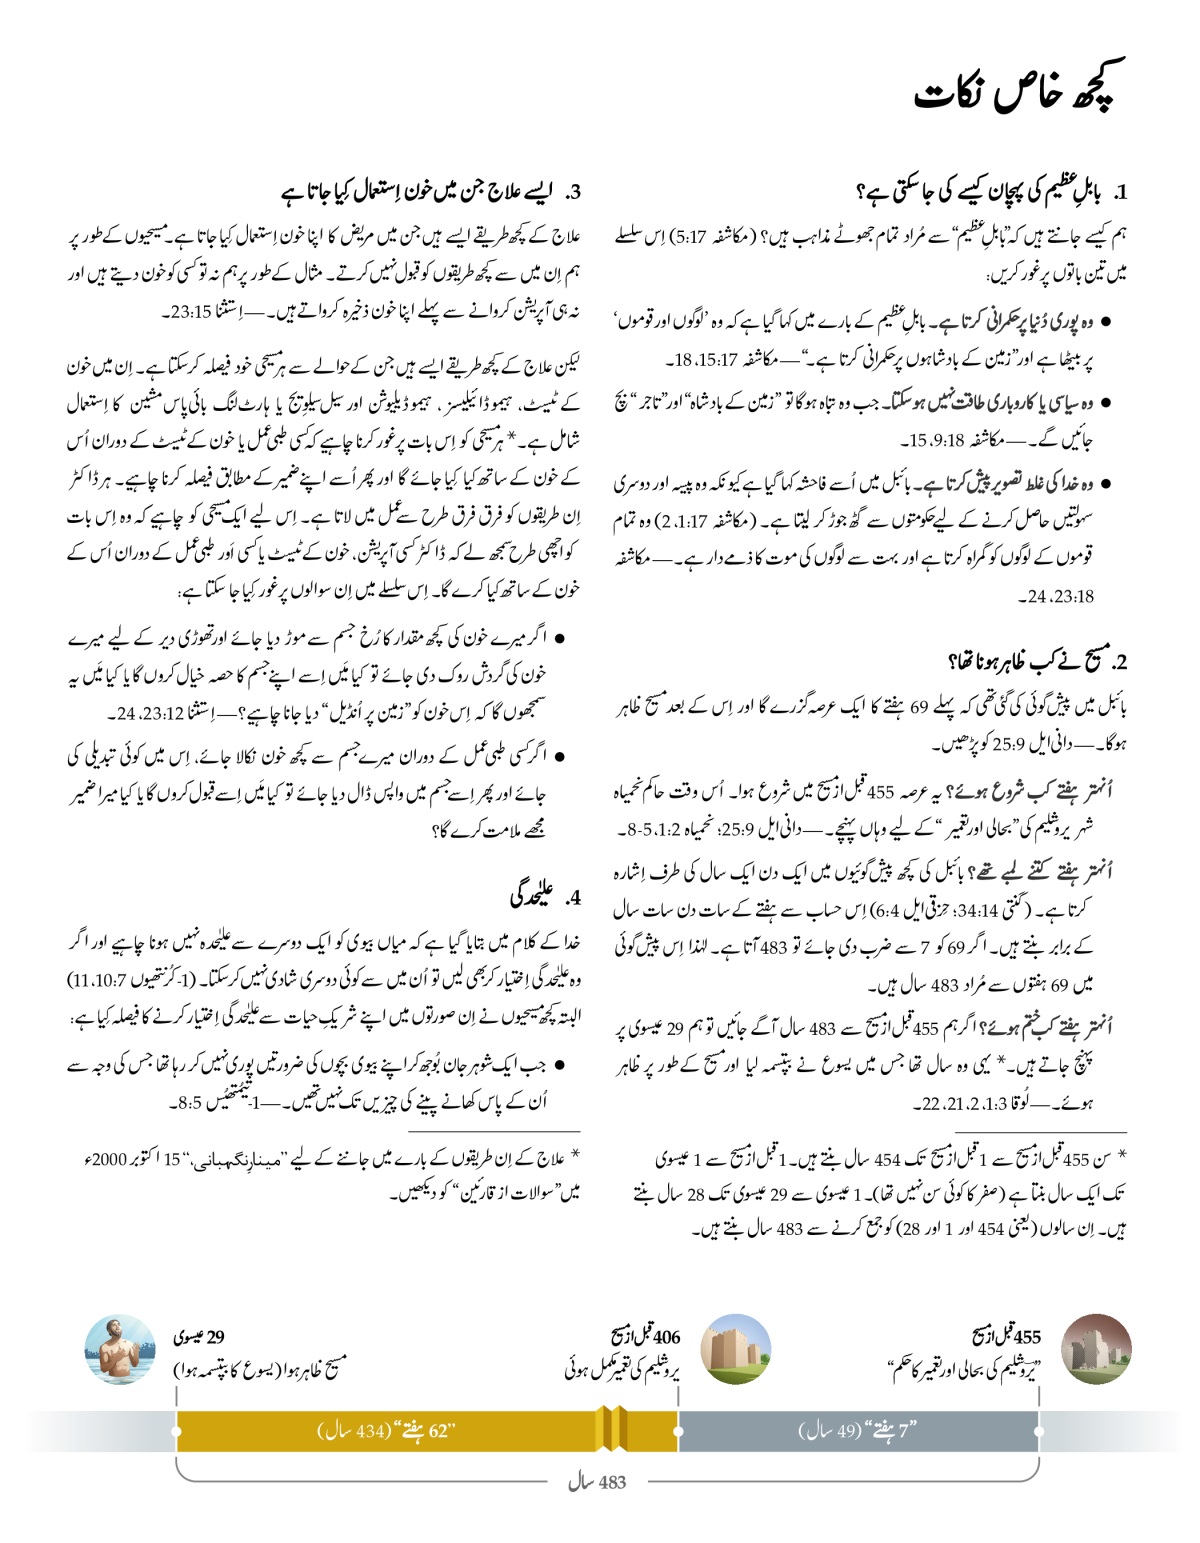 کچھ خاص نکات
1. بابلِ‌عظیم کی پہچان کیسے کی جا سکتی ہے؟
ہم کیسے جانتے ہیں کہ ”بابلِ‌عظیم“ سے مُراد تمام جھوٹے مذاہب ہیں؟ (مکاشفہ 17:‏5) اِس سلسلے
میں تین باتوں پر غور کریں:
● وہ پوری دُنیا پر حکمرانی کرتا ہے۔ بابلِ‌عظیم کے بارے میں کہا گیا ہے کہ وہ ’لوگوں اور قوموں‘
پر بیٹھا ہے اور ”زمین کے بادشاہوں پر حکمرانی کرتا ہے۔“—مکاشفہ 17:‏15، 18۔
● وہ سیاسی یا کاروباری طاقت نہیں ہو سکتا۔ جب وہ تباہ ہوگا تو ”زمین کے بادشاہ“ اور ”تاجر“ بچ
جائیں گے۔—مکاشفہ 18:‏9، 15۔
● وہ خدا کی غلط تصویر پیش کرتا ہے۔ بائبل میں اُسے فاحشہ کہا گیا ہے کیونکہ وہ پیسہ اور دوسری
سہولتیں حاصل کرنے کے لیے حکومتوں سے گٹھ جوڑ کر لیتا ہے۔ (مکاشفہ 17:‏1، 2) وہ تمام
قوموں کے لوگوں کو گمراہ کرتا ہے اور بہت سے لوگوں کی موت کا ذمے‌دار ہے۔—مکاشفہ
18:‏23، 24۔
2. مسیح نے کب ظاہر ہونا تھا؟
بائبل میں پیش‌گوئی کی گئی تھی کہ پہلے 69 ہفتے کا ایک عرصہ گزرے گا اور اِس کے بعد مسیح ظاہر
ہوگا۔—دانی‌ایل 9:‏25 کو پڑھیں۔
اُنہتر ہفتے کب شروع ہوئے؟ یہ عرصہ 455 قبل‌ازمسیح میں شروع ہوا۔ اُس وقت حاکم نحمیاہ
شہر یروشلیم کی ”بحالی اور تعمیر“ کے لیے وہاں پہنچے۔—دانی‌ایل 9:‏25؛ نحمیاہ 2:‏1، 5-‏8۔
اُنہتر ہفتے کتنے لمبے تھے؟ بائبل کی کچھ پیش‌گوئیوں میں ایک دن ایک سال کی طرف اِشارہ
کرتا ہے۔ (گنتی 14:‏34؛ حِزقی‌ایل 4:‏6) اِس حساب سے ہفتے کے سات دن سات سال
کے برابر بنتے ہیں۔ اگر 69 کو 7 سے ضرب دی جائے تو 483 آتا ہے۔ لہٰذا اِس پیش‌گوئی
میں 69 ہفتوں سے مُراد 483 سال ہیں۔
اُنہتر ہفتے کب ختم ہوئے؟ اگر ہم 455 قبل‌ازمسیح سے 483 سال آگے جائیں تو ہم 29 عیسوی پر
پہنچ جاتے ہیں۔* یہی وہ سال تھا جس میں یسوع نے بپتسمہ لیا اور مسیح کے طور پر ظاہر
ہوئے۔—لُوقا 3:‏1، 2، 21، 22۔
* سن 455 قبل‌ازمسیح سے 1 قبل‌ازمسیح تک 454 سال بنتے ہیں۔ 1 قبل‌ازمسیح سے 1 عیسوی
تک ایک سال بنتا ہے (صفر کا کوئی سن نہیں تھا)۔ 1 عیسوی سے 29 عیسوی تک 28 سال بنتے
ہیں۔ اِن سالوں (یعنی 454 اور 1 اور 28) کو جمع کرنے سے 483 سال بنتے ہیں۔
3. ایسے علاج جن میں خون اِستعمال کِیا جاتا ہے
علاج کے کچھ طریقے ایسے ہیں جن میں مریض کا اپنا خون اِستعمال کِیا جاتا ہے۔ مسیحیوں کے طور پر
ہم اِن میں سے کچھ طریقوں کو قبول نہیں کرتے۔ مثال کے طور پر ہم نہ تو کسی کو خون دیتے ہیں اور
نہ ہی آپریشن کروانے سے پہلے اپنا خون ذخیرہ کرواتے ہیں۔—اِستثنا 15:‏23۔
لیکن علاج کے کچھ طریقے ایسے ہیں جن کے حوالے سے ہر مسیحی خود فیصلہ کر سکتا ہے۔ اِن میں خون
کے ٹیسٹ، ہیموڈائیلیسز، ہیموڈیلیوشن اور سیل سیلویج یا ہارٹ لنگ بائی‌پاس مشین کا اِستعمال
شامل ہے۔* ہر مسیحی کو اِس بات پر غور کرنا چاہیے کہ کسی طبی عمل یا خون کے ٹیسٹ کے دوران اُس
کے خون کے ساتھ کیا کِیا جائے گا اور پھر اُسے اپنے ضمیر کے مطابق فیصلہ کرنا چاہیے۔ ہر ڈاکٹر
اِن طریقوں کو فرق فرق طرح سے عمل میں لاتا ہے۔ اِس لیے ایک مسیحی کو چاہیے کہ وہ اِس بات
کو اچھی طرح سمجھ لے کہ ڈاکٹر کسی آپریشن، خون کے ٹیسٹ یا کسی اَور طبی عمل کے دوران اُس کے
خون کے ساتھ کیا کرے گا۔ اِس سلسلے میں اِن سوالوں پر غور کِیا جا سکتا ہے:
● اگر میرے خون کی کچھ مقدار کا رُخ جسم سے موڑ دیا جائے اور تھوڑی دیر کے لیے میرے
خون کی گردش روک دی جائے تو کیا مَیں اِسے اپنے جسم کا حصہ خیال کروں گا یا کیا مَیں یہ
سمجھوں گا کہ اِس خون کو ”زمین پر اُنڈیل“ دیا جانا چاہیے؟—اِستثنا 12:‏23، 24۔
● اگر کسی طبی عمل کے دوران میرے جسم سے کچھ خون نکالا جائے، اِس میں کوئی تبدیلی کی
جائے اور پھر اِسے جسم میں واپس ڈال دیا جائے تو کیا مَیں اِسے قبول کروں گا یا کیا میرا ضمیر
مجھے ملامت کرے گا؟
4. علیٰحدگی
خدا کے کلام میں بتایا گیا ہے کہ میاں بیوی کو ایک دوسرے سے علیٰحدہ نہیں ہونا چاہیے اور اگر
وہ علیٰحدگی اِختیار کر بھی لیں تو اُن میں سے کوئی دوسری شادی نہیں کر سکتا۔ (1-‏کُرنتھیوں 7:‏10، 11)
البتہ کچھ مسیحیوں نے اِن صورتوں میں اپنے شریکِ‌حیات سے علیٰحدگی اِختیار کرنے کا فیصلہ کِیا ہے:
● جب ایک شوہر جان بُوجھ کر اپنے بیوی بچوں کی ضرورتیں پوری نہیں کر رہا تھا جس کی وجہ سے
اُن کے پاس کھانے پینے کی چیزیں تک نہیں تھیں۔—1-‏تیمُتھیُس 5:‏8۔
* علاج کے اِن طریقوں کے بارے میں جاننے کے لیے ”مینارِنگہبانی،“ 15 اکتوبر 2000ء
میں ”سوالات از قارئین“ کو دیکھیں۔
455 قبل‌ازمسیح
”یروشلیم کی بحالی اور تعمیر کا حکم“
406 قبل‌ازمسیح
یروشلیم کی تعمیر مکمل ہوئی
29 عیسوی
مسیح ظاہر ہوا (یسوع کا بپتسمہ ہوا)
”7 ہفتے“ (49 سال)
”62 ہفتے“ (434 سال)
483 سال